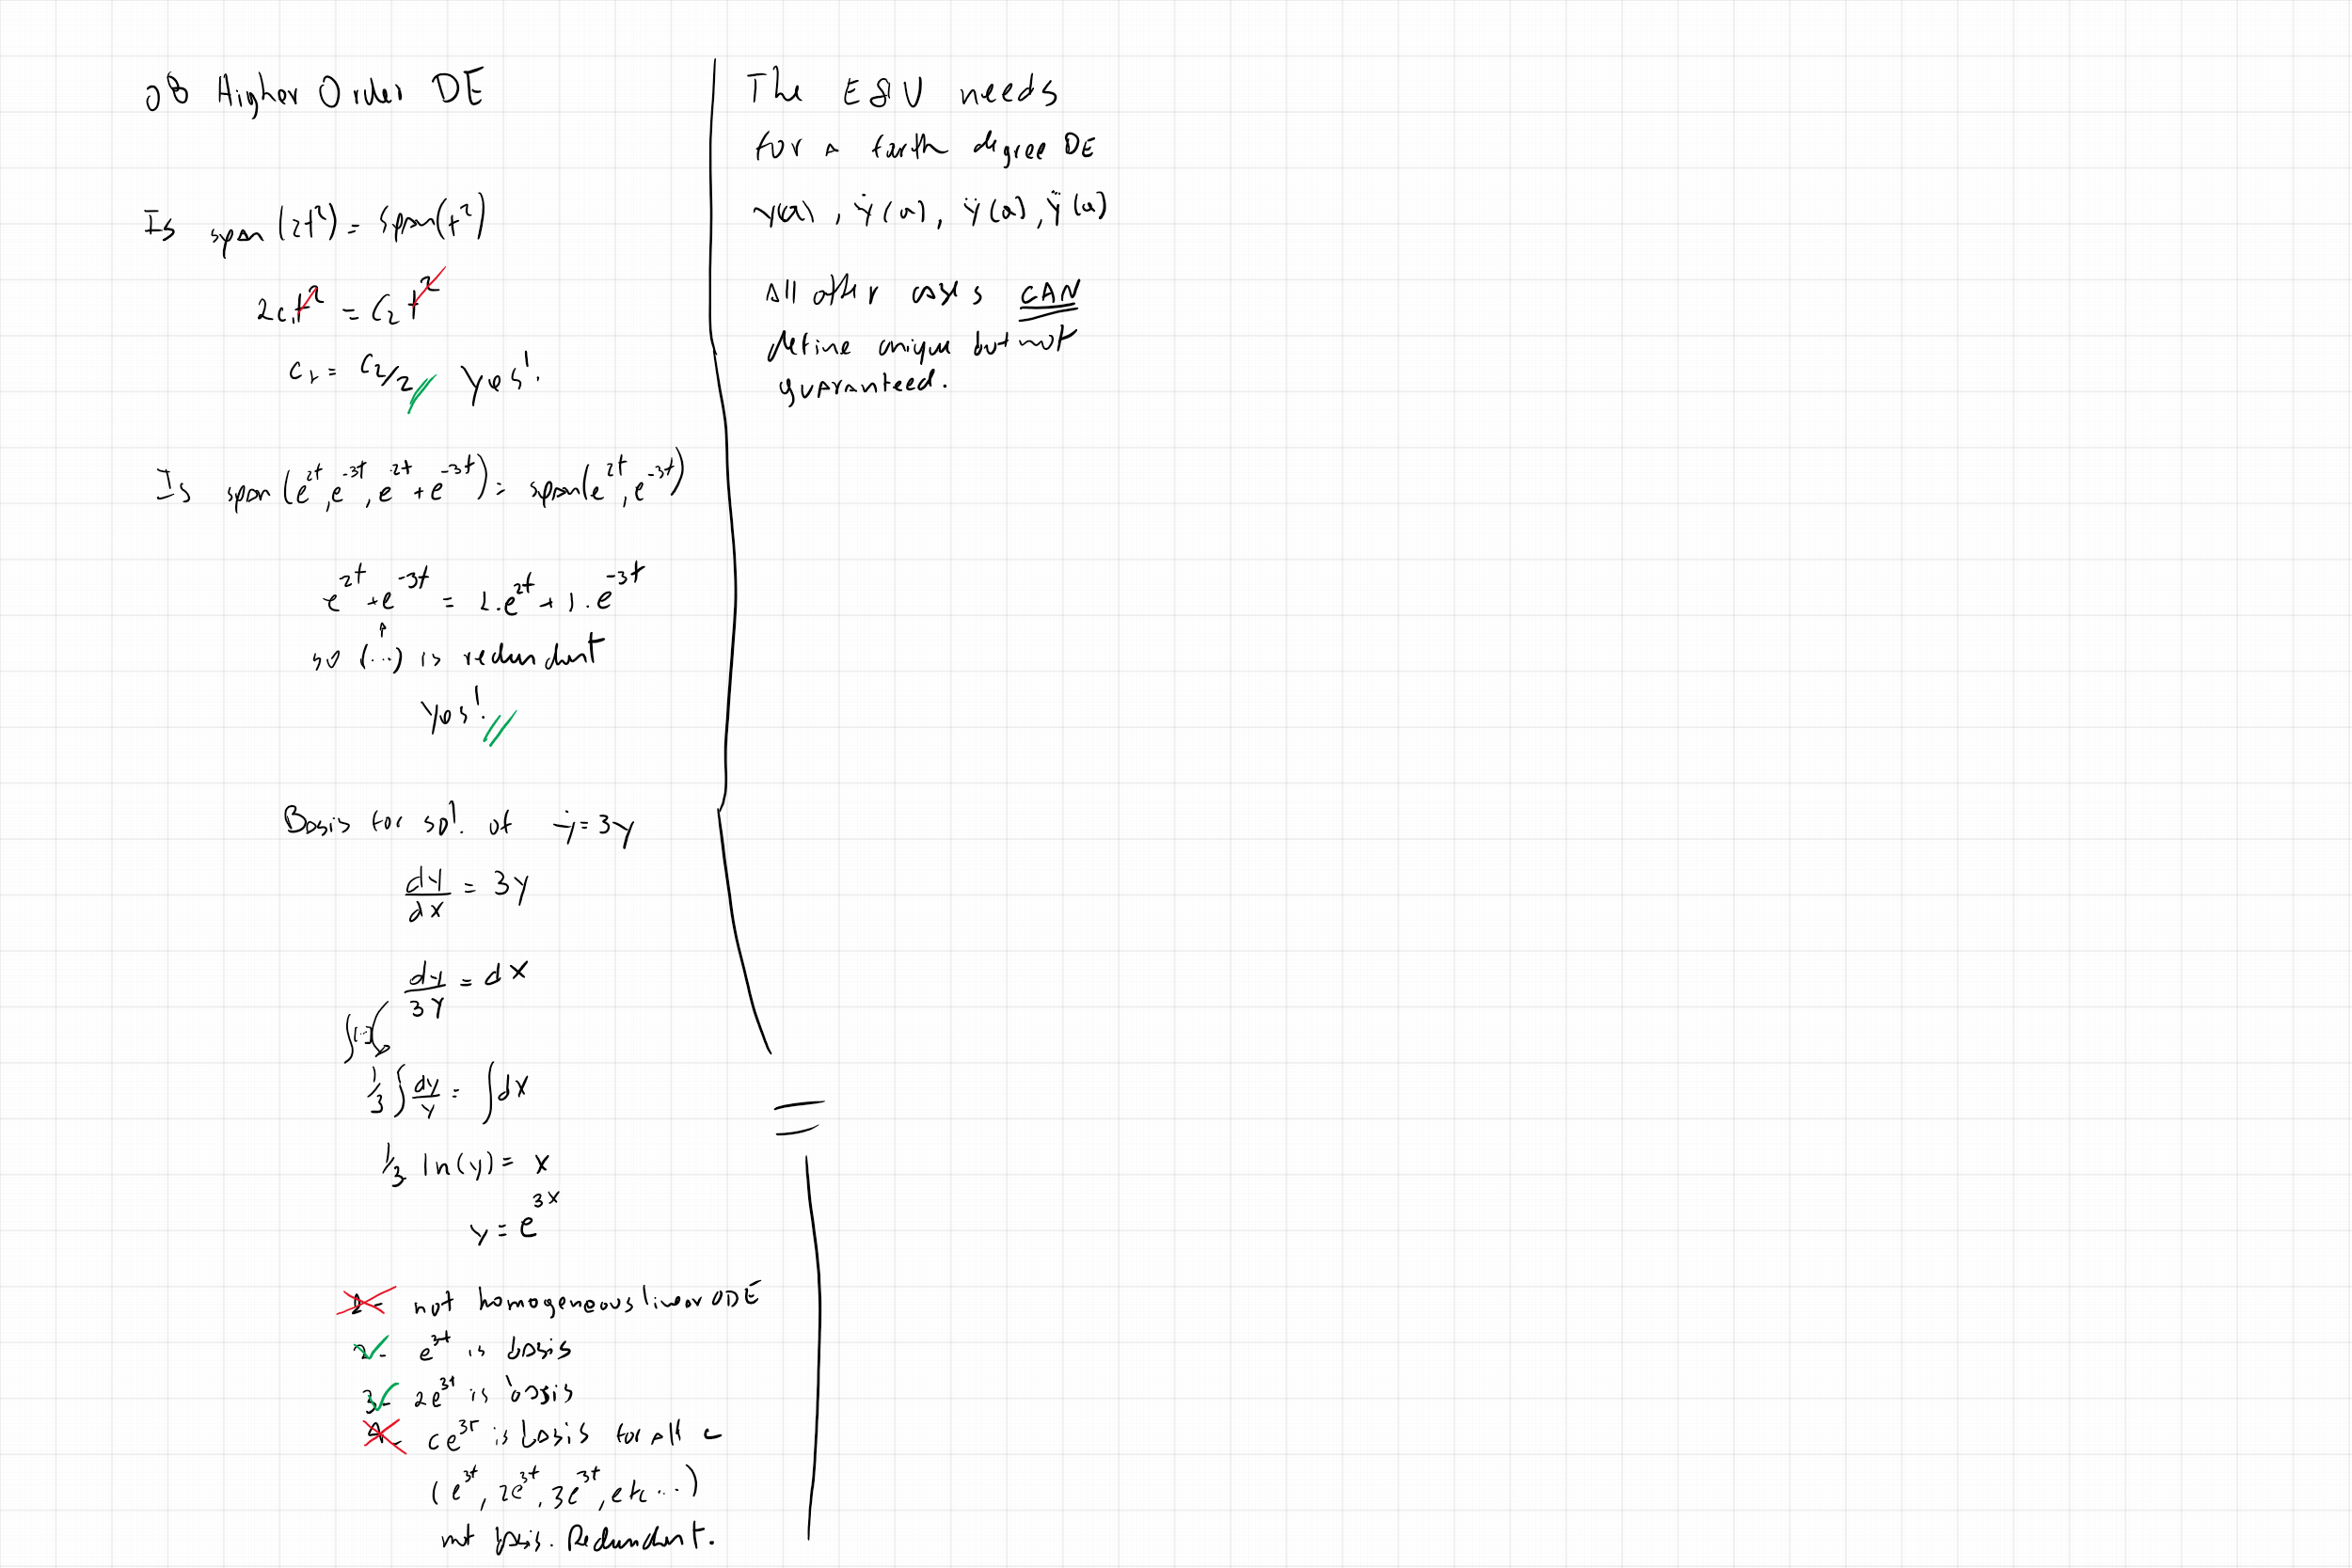 08 Higher Order DE
Is span (2t²) = span(t²)
2c₁t² = c₂t²
c₁ = c₂/2 Yes!
Is span (e^2t, e^-3t, e^2t + e^-3t) = span(e^2t, e^-3t)
e^2t + e^-3t = 1.e^2t + 1.e^-3t
so (...) is redundant
Yes!
Basis for sol. of ẏ = 3y
dy/dx = 3y
dy/3y = dx
∫(...)
1/3 ∫ dy/y = ∫dx
1/3 ln(y) = x
y = e^3x
1- not homogeneous linear ODE
2- e^3t is basis
3- 2e^3t is basis
4- ce^3t is basis for all c
(e^3t, 2e^3t, 3e^3t, etc...)
not basis. Redundant.
The E&U needs
for a forth degree DE
y(a), ẏ(a), ÿ(a), y⃛(a)
All other cases CAN
define unique but not
guaranteed.
=